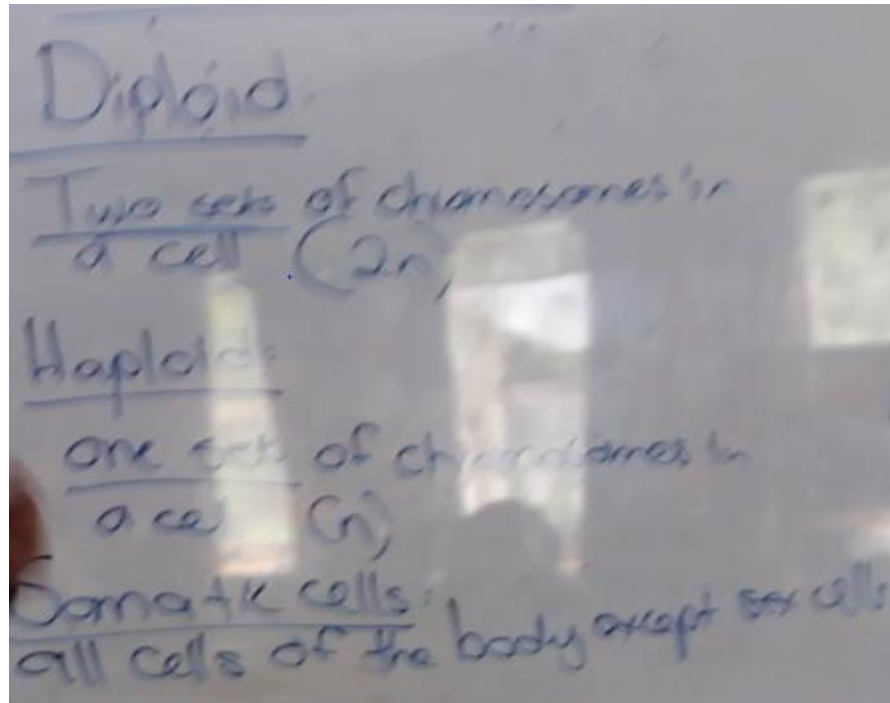 Diploid:
Two sets of chromosomes in
a cell (2n)
Haploid:
one set of chromosomes in
a cell (n)
Somatic cells:
all cells of the body except sex cells